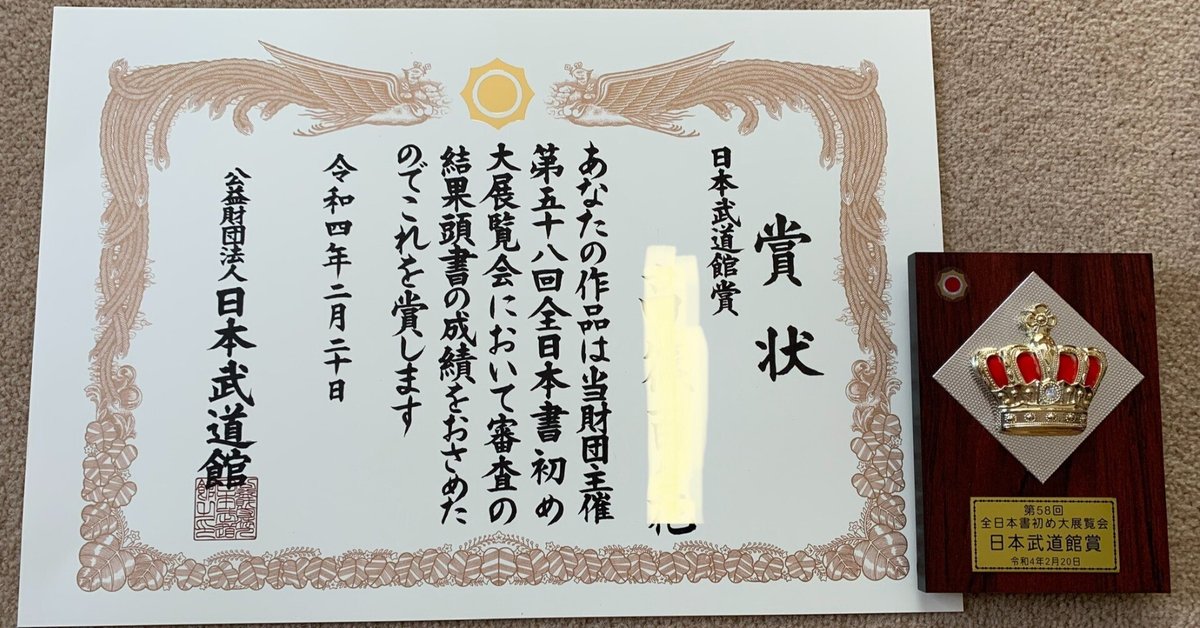 賞状
日本武道館賞
あなたの作品は当財団主催
第五十八回全日本書初め
大展覧会において審査の
結果頭書の成績をおさめた
のでこれを賞します
令和四年二月二十日
公益財団法人日本武道館
第58回
全日本書初め大展覧会
日本武道館賞
令和4年2月20日